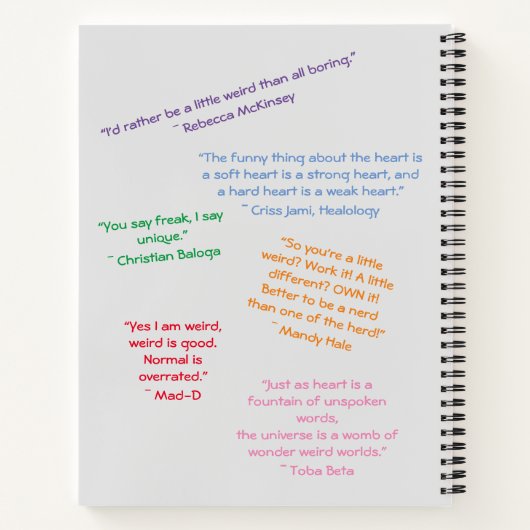 “I’d rather be a little weird than all boring.”
~ Rebecca McKinsey
“The funny thing about the heart is
a soft heart is a strong heart, and
a hard heart is a weak heart.”
~ Criss Jami, Healology
“You say freak, I say
unique.”
~ Christian Baloga
“So you’re a little
weird? Work it! A little
different? OWN it!
Better to be a nerd
than one of the herd!”
~ Mandy Hale
“Yes I am weird,
weird is good.
Normal is
overrated.”
~ Mad-D
“Just as heart is a
fountain of unspoken
words,
the universe is a womb of
wonder weird worlds.”
~ Toba Beta